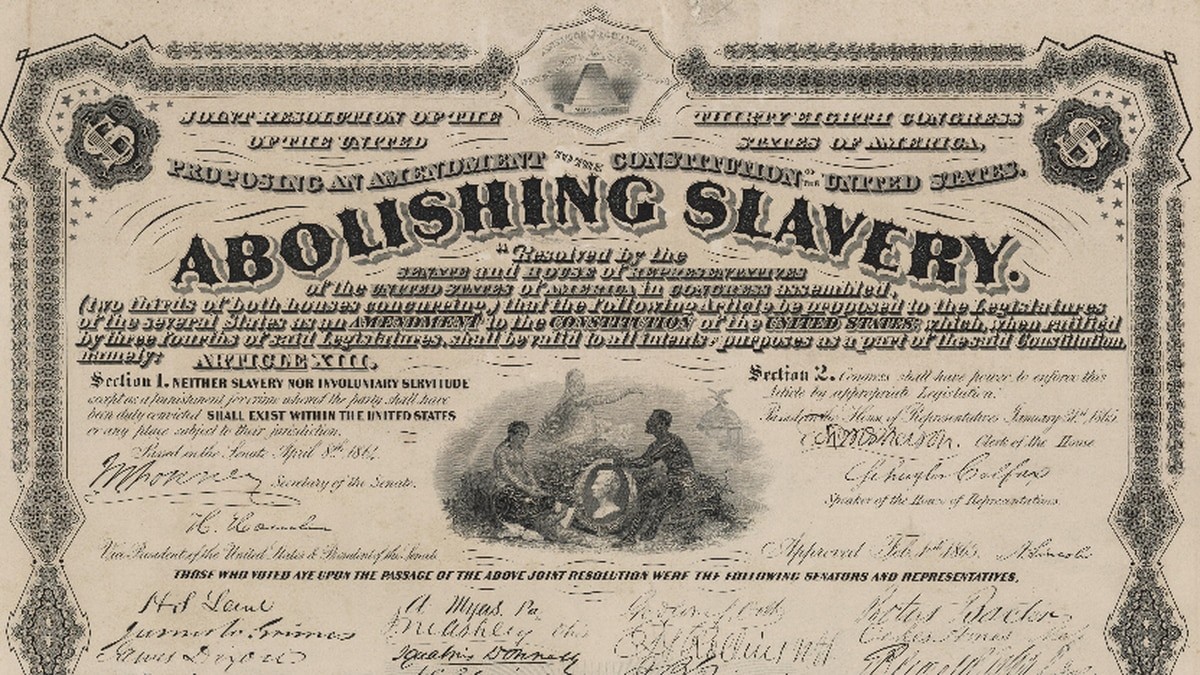 JOINT RESOLUTION OF THE THIRTY EIGHTH CONGRESS
OF THE UNITED STATES OF AMERICA,
PROPOSING AN AMENDMENT TO THE CONSTITUTION OF THE UNITED STATES.
ABOLISHING SLAVERY.
"Resolved by the
SENATE and HOUSE of REPRESENTATIVES
of the UNITED STATES of AMERICA in CONGRESS assembled,
(two thirds of both houses concurring,) that the following Article be proposed to the Legislatures
of the several States as an AMENDMENT to the CONSTITUTION of the UNITED STATES; which, when ratified
by three fourths of said Legislatures, shall be valid to all intents & purposes as a part of the said Constitution,
namely: ARTICLE XIII.
Section 1. NEITHER SLAVERY NOR INVOLUNTARY SERVITUDE
except as a punishment for crime whereof the party shall have
been duly convicted SHALL EXIST WITHIN THE UNITED STATES
or any place subject to their jurisdiction.
Passed in the Senate April 8th 1864.
Secretary of the Senate.
H. Hamlin
Vice President of the United States & President of the Senate
Section 2. Congress shall have power to enforce this
Article by appropriate Legislation.
Passed in the House of Representatives January 31st 1865
Clerk of the House
Schuyler Colfax
Speaker of the House of Representatives.
Approved Feb. 1st 1865. A. Lincoln
THOSE WHO VOTED AYE UPON THE PASSAGE OF THE ABOVE JOINT RESOLUTION WERE THE FOLLOWING SENATORS AND REPRESENTATIVES,
A. Myers, Pa
Ashley Ohio
James Dixon Ignatius Donnelly